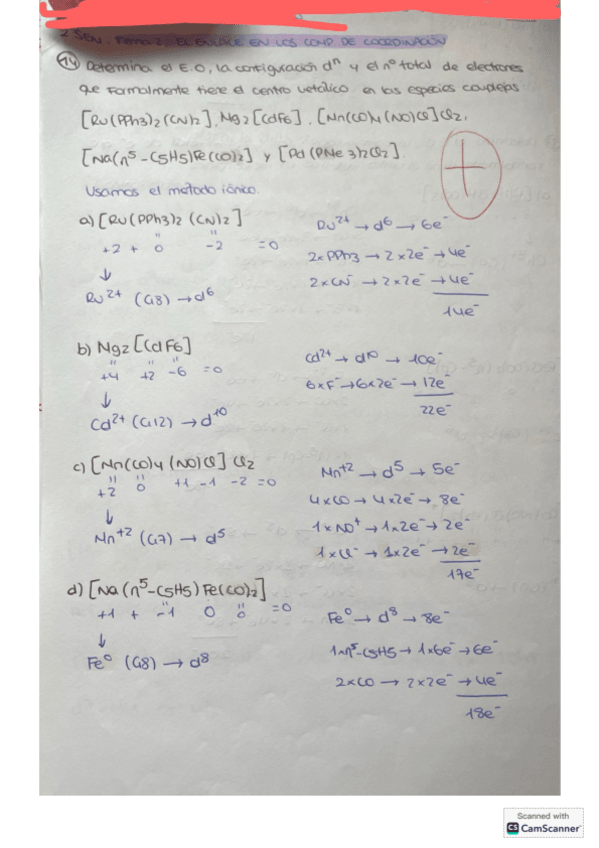 2 SEM. TEMA 2: EL ENLACE EN LOS COMP. DE COORDINACIÓN
14 Determina el E.O, la configuración dⁿ y el nº total de electrones
que formalmente tiene el centro metálico en las especies complejas
[Ru(PPh3)2(CN)2], Mg2[CdF6], [Mn(CO)4(NO)Cl]Cl2,
[Na(η⁵-C5H5)Fe(CO)2] y [Pd(PMe3)2Cl2].
Usamos el método iónico.
a) [Ru(PPh3)2(CN)2]
+2 + 0 -2 =0
↓
Ru²⁺ (G8) → d⁶
Ru²⁺ → d⁶ → 6e⁻
2xPPh3 → 2x2e⁻ → 4e⁻
2xCN⁻ → 2x2e⁻ → 4e⁻
14e⁻
b) Mg2[CdF6]
+4 +2 -6 =0
↓
Cd²⁺ (G12) → d¹⁰
Cd²⁺ → d¹⁰ → 10e⁻
6xF⁻ → 6x2e⁻ → 12e⁻
22e⁻
c) [Mn(CO)4(NO)Cl]Cl2
+2 0 +1 -1 -2 =0
↓
Mn⁺² (G7) → d⁵
Mn⁺² → d⁵ → 5e⁻
4xCO → 4x2e⁻ → 8e⁻
1xNO⁺ → 1x2e⁻ → 2e⁻
1xCl⁻ → 1x2e⁻ → 2e⁻
17e⁻
d) [Na(η⁵-C5H5)Fe(CO)2]
+1 + -1 0 0 =0
↓
Fe⁰ (G8) → d⁸
Fe⁰ → d⁸ → 8e⁻
1xη⁵-C5H5 → 1x6e⁻ → 6e⁻
2xCO → 2x2e⁻ → 4e⁻
18e⁻
Scanned with
CS CamScanner